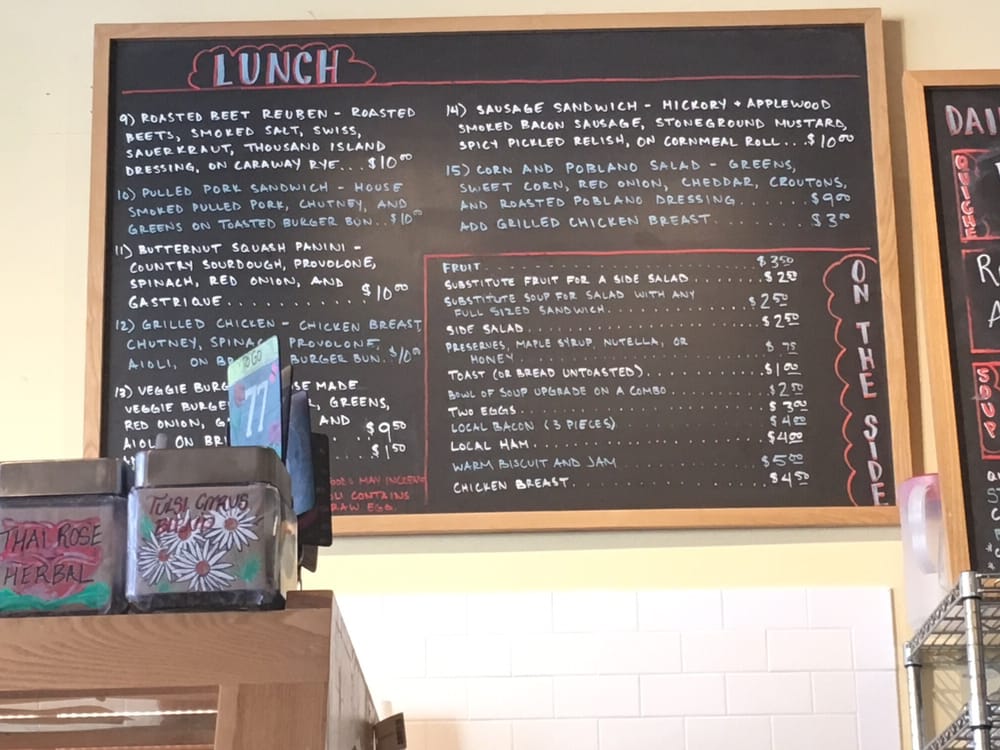 LUNCH
9) ROASTED BEET REUBEN - ROASTED
BEETS, SMOKED SALT, SWISS,
SAUERKRAUT, THOUSAND ISLAND
DRESSING, ON CARAWAY RYE... $10.00
10) PULLED PORK SANDWICH - HOUSE
SMOKED PULLED PORK, CHUTNEY, AND
GREENS ON TOASTED BURGER BUN.. $10.00
11) BUTTERNUT SQUASH PANINI -
COUNTRY SOURDOUGH, PROVOLONE,
SPINACH, RED ONION, AND
GASTRIQUE............ $10.00
12) GRILLED CHICKEN - CHICKEN BREAST
CHUTNEY, PROVOLONE,
AIOLI, ON BURGER BUN. $10.00
13) VEGGIE
VEGGIE GREENS,
RED ONION, AND
AIOLI ON $9.50
$1.50
14) SAUSAGE SANDWICH - HICKORY + APPLEWOOD
SMOKED BACON SAUSAGE, STONEGROUND MUSTARD,
SPICY PICKLED RELISH, ON CORNMEAL ROLL... $10.00
15) CORN AND POBLANO SALAD - GREENS,
SWEET CORN, RED ONION, CHEDDAR, CROUTONS,
AND ROASTED POBLANO DRESSING....... $9.00
ADD GRILLED CHICKEN BREAST......... $3.00
ON THE SIDE
FRUIT........................ $3.50
SUBSTITUTE FRUIT FOR A SIDE SALAD....... $2.50
SUBSTITUTE SOUP FOR SALAD WITH ANY
FULL SIZED SANDWICH............ $2.50
SIDE SALAD.................... $2.50
PRESERVES, MAPLE SYRUP, NUTELLA, OR
HONEY...................... $.75
TOAST (OR BREAD UNTOASTED)........... $1.00
BOWL OF SOUP UPGRADE ON A COMBO......... $2.50
TWO EGGS....................... $3.00
LOCAL BACON (3 PIECES)............. $4.00
LOCAL HAM..................... $4.00
WARM BISCUIT AND JAM.............. $5.00
CHICKEN BREAST.................. $4.50
MAY
CONTAINS
RAW EGG.
TO GO
77
THAI ROSE
HERBAL
TULSI CITRUS
BLEND
QUICHE
SOUP